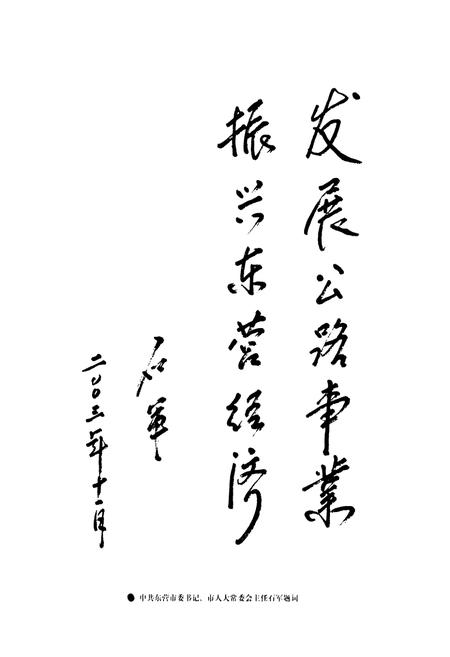 发展公路事業
振兴东营经济
石军
二〇〇三年十一月
● 中共东营市委书记、市人大常委会主任石军题词